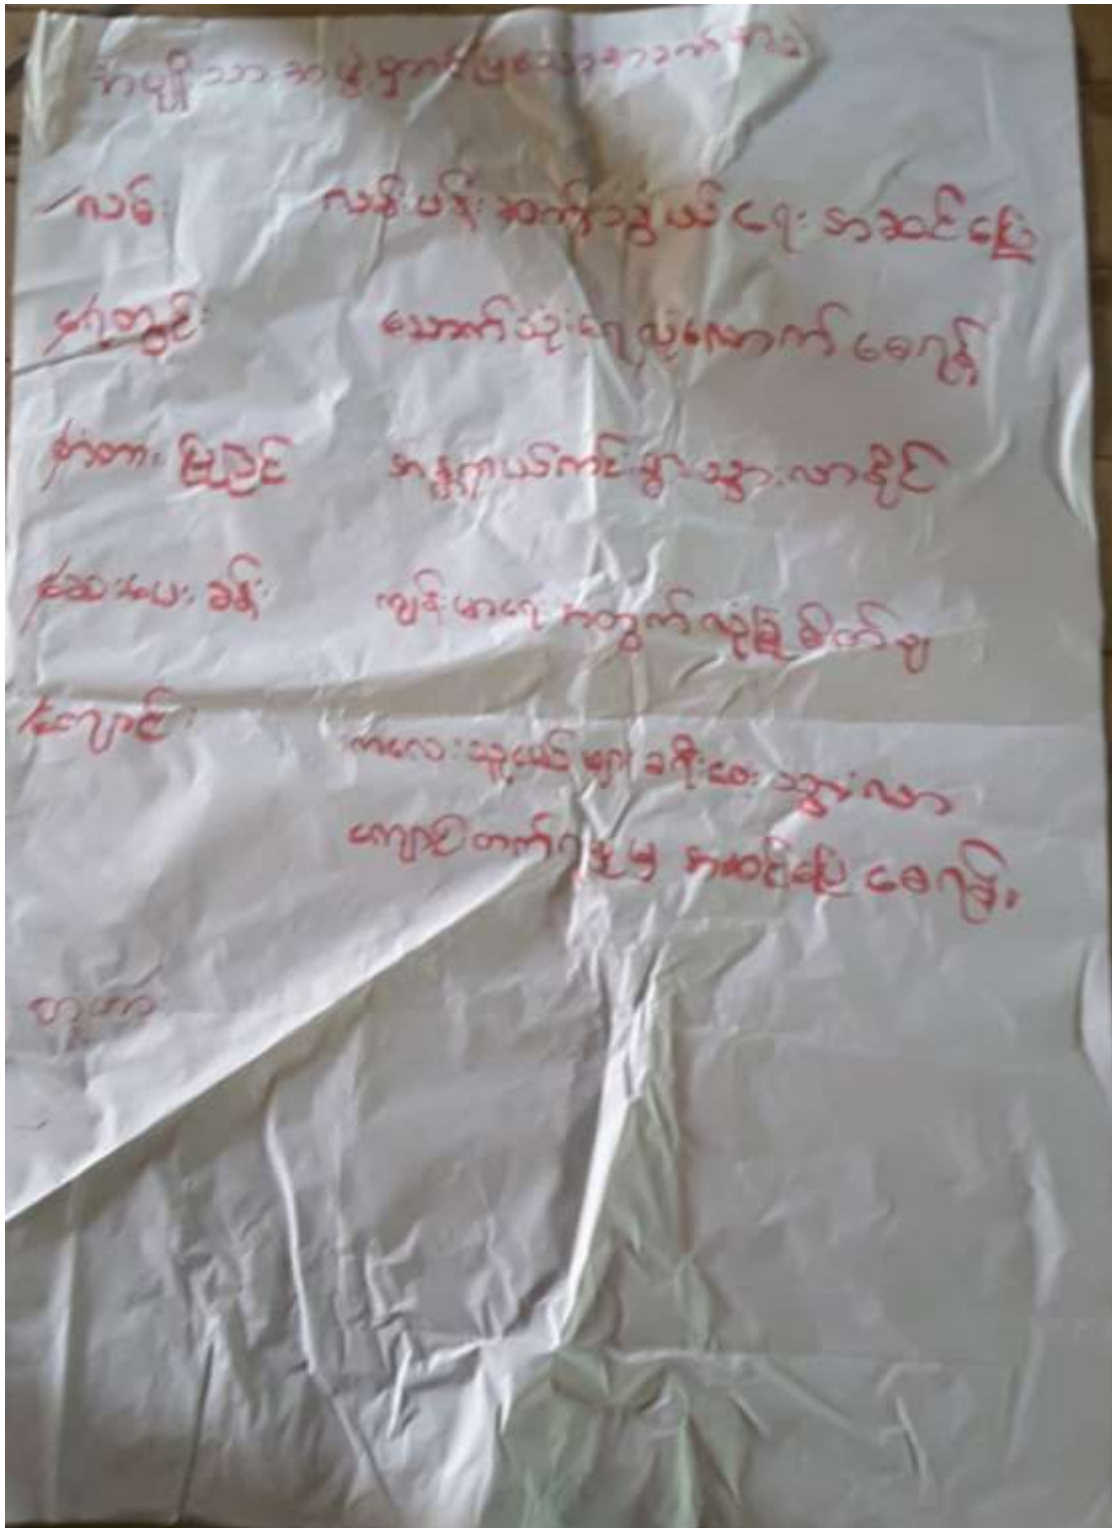 အမျိုးသားအဖွဲ့မှတင်ပြသောအခက်အခဲ
လမ်း လမ်းပန်းဆက်သွယ်ရေး အဆင်ပြေ
ရေတွင်း သောက်သုံးရေလုံလောက်စေရန်
တံတားပြုပြင် အန္တရာယ်ကင်းစွာသွားလာနိုင်
ဆေးပေးခန်း ကျန်းမာရေးအတွက်လုံခြုံစိတ်ချ
ကျောင်း ကလေးသူငယ်များခရီးဝေးသွားလာ
ကျောင်းတက်ရမှုမှ အဆင်ပြေစေရန်။